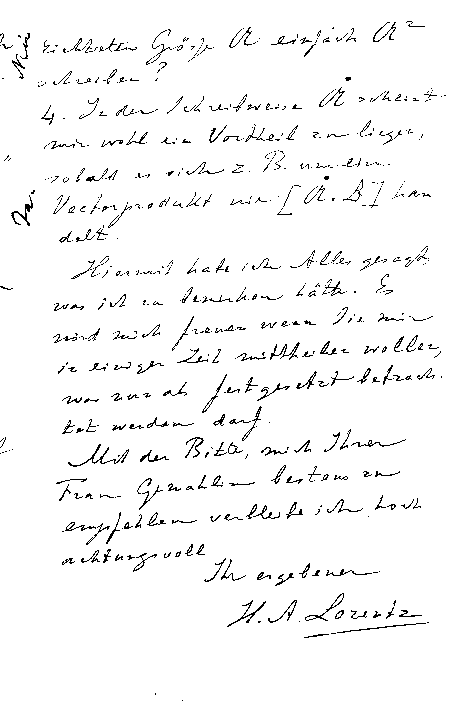 richteten Grösse A einfach A²
schreiben?
4. In der Schreibweise Ȧ scheint
mir wohl ein Vortheil zu liegen,
sobald es sich z. B. um ein
Vectorprodukt wie [Ȧ. B] han
delt.
Hiermit habe ich Alles gesagt,
was ich zu bemerken hätte. Es
wird mich freuen wenn Sie mir
in einiger Zeit mittheilen wollen,
was nun als festgesetzt betrach-
tet werden darf.
Mit der Bitte, mich Ihrer
Frau Gemahlin bestens zu
empfehlen verbleibe ich hoch
achtungsvoll
Ihr ergebener
H. A. Lorentz